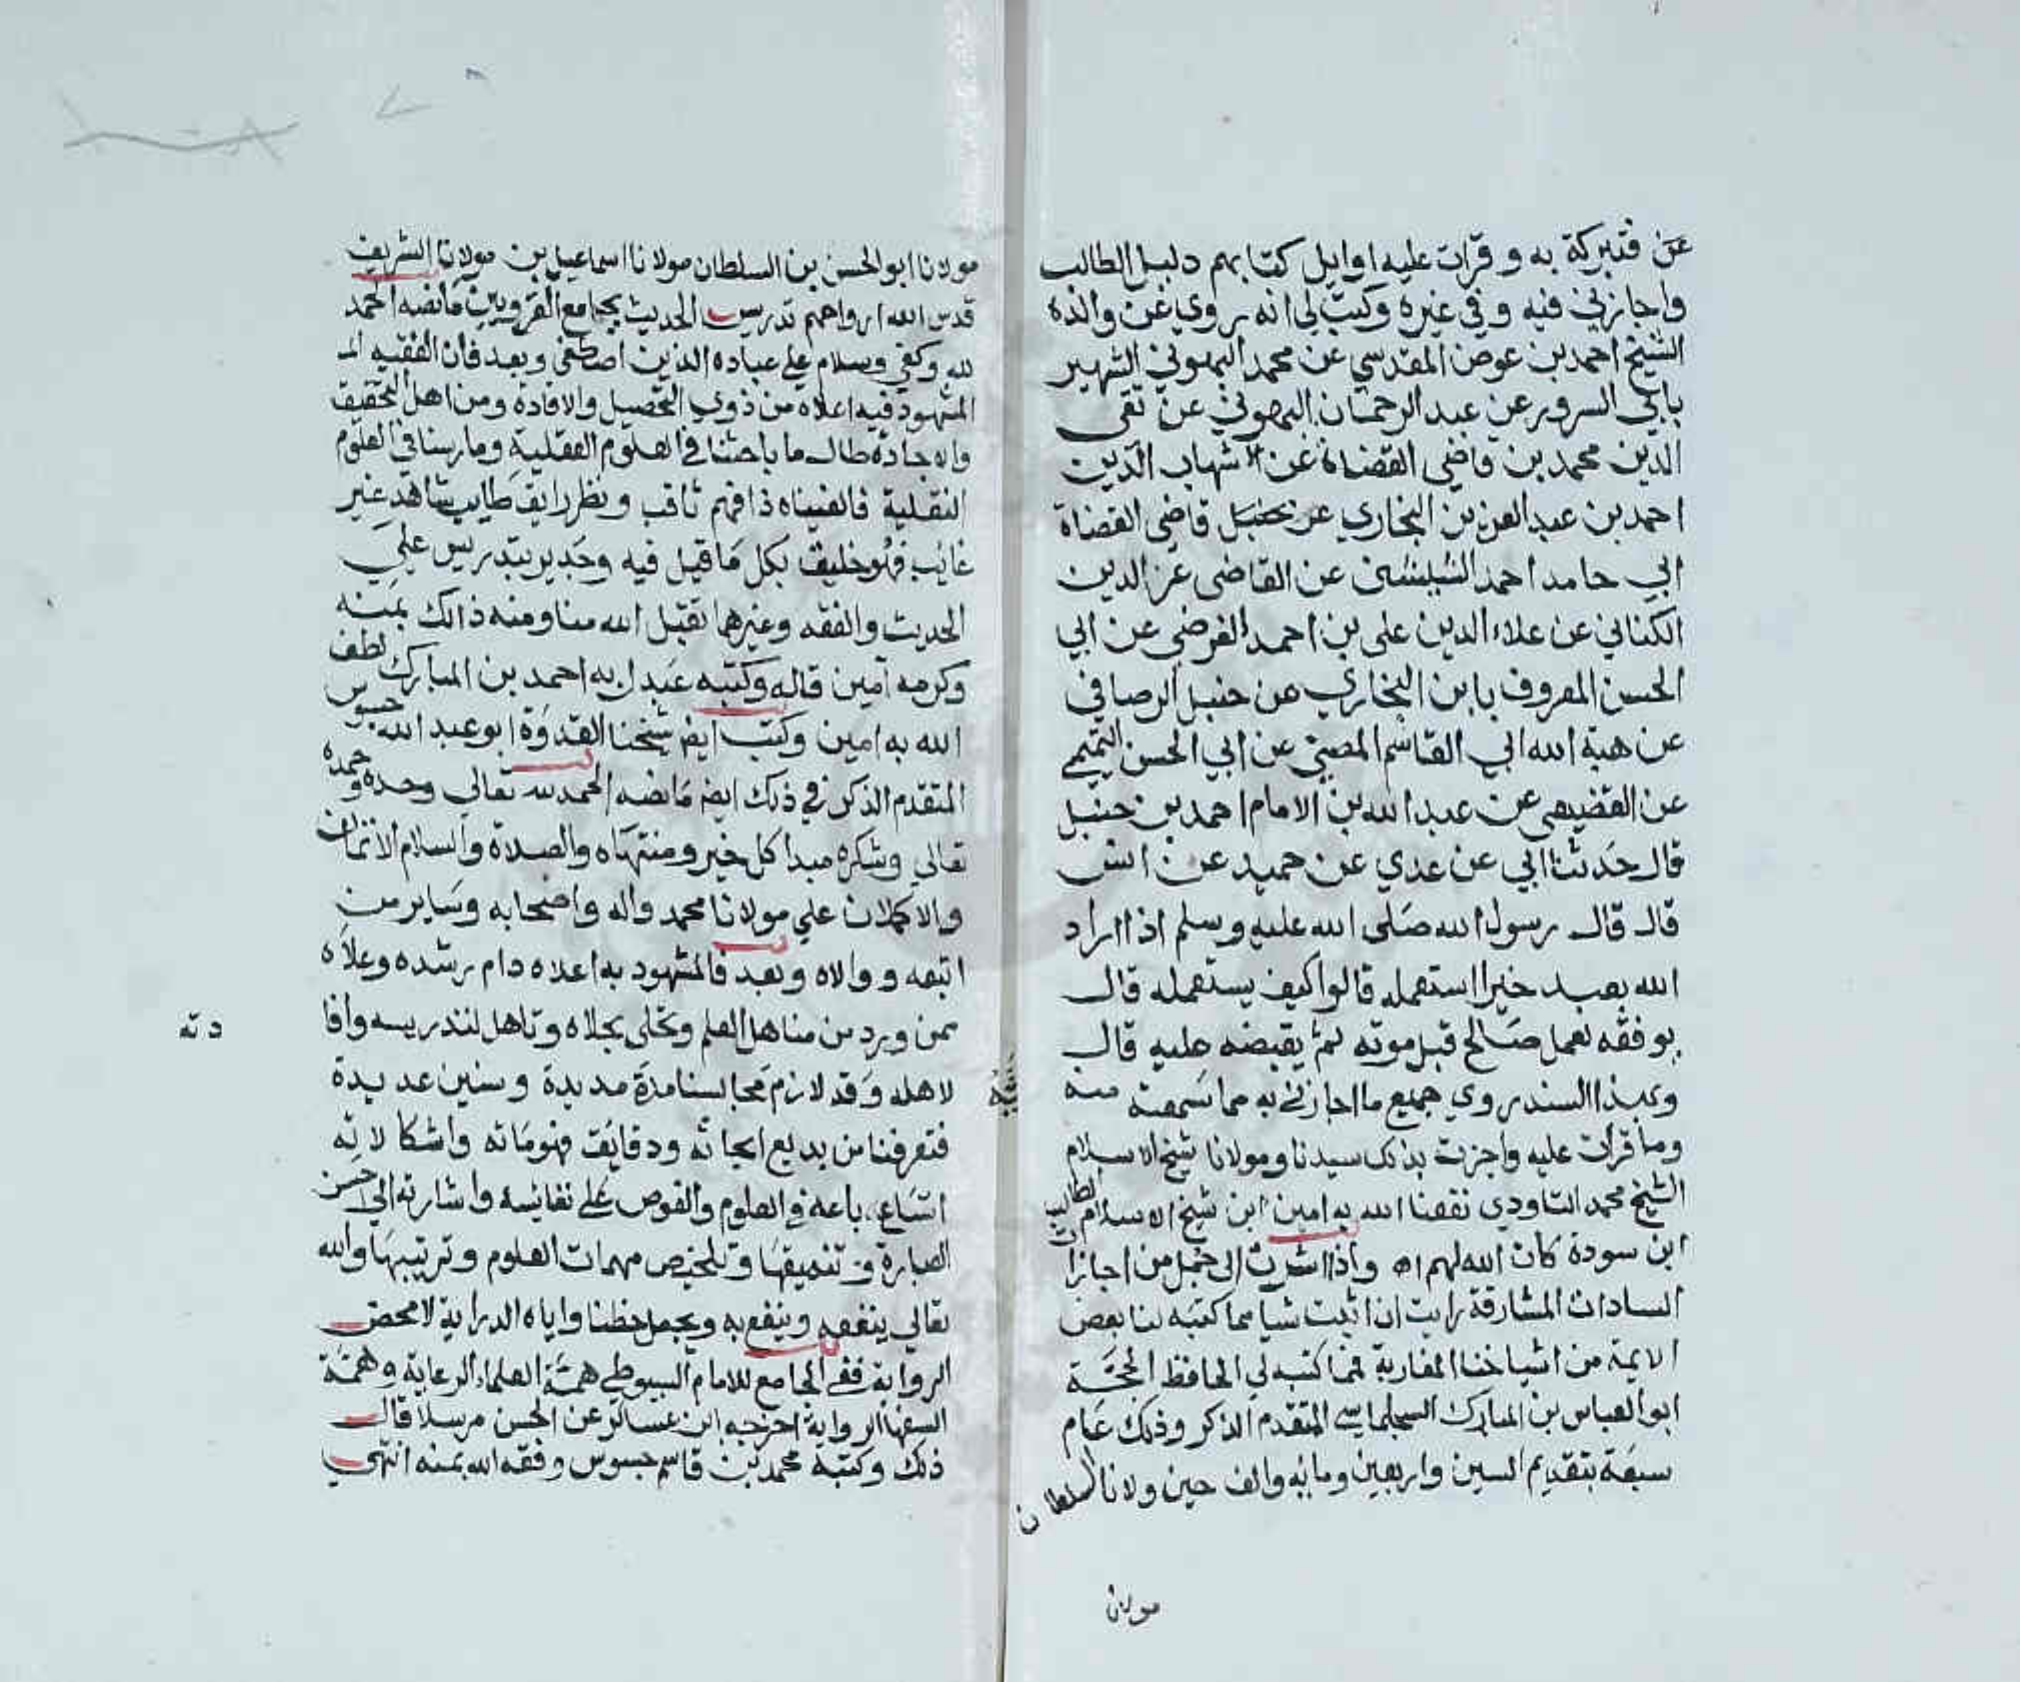 عن فتبركة به وقرات عليه اوايل كتابهم دليل الطالب
واجازني فيه وفي غيره وكتب لي انه يروي عن والده
الشيخ احمد بن عوض المقدسي عن محمد البهوتي الشهير
بابي السرور عن عبد الرحمان البهوتي عن تقي
الدين محمد بن قاضي القضاة عن شهاب الدين
احمد بن عبد العزيز البخاري عن حنبل قاضي القضاة
ابي حامد احمد الشيشني عن القاضي عز الدين
الكناني عن علاء الدين علي بن احمد الفرضي عن ابي
الحسن المعروف بابن البخاري عن حنبل الرصافي
عن هبة الله ابي القاسم عن ابي الحسن التميمي
عن القضيعي عن عبد الله بن الامام احمد بن حنبل
قال حدثنا ابي عن عدي عن حميد عن انس
قال قال رسول الله صلى الله عليه وسلم اذا اراد
الله بعبد خيرا استعمله قالوا كيف يستعمله قال
يوفقه لعمل صالح قبل موته ثم يقبضه عليه قال
وبهذا السند روي جميع ما اجازني به مما سمعته منه
وما قرات عليه واجزت بذلك سيدنا ومولانا شيخ الاسلام
الشيخ محمد التاودي نفعنا الله به امين ابن شيخ الاسلام الطالب
ابن سودة كان الله لهم اه واذا اشرت الى جمل من اجازات
السادات المشارقة رايت ان اثبت شيا مما كتبه لنا بعض
الايمة من اشياخنا المغاربة فما كتبه لي الحافظ الحجة
ابو العباس بن المبارك السجلماسي المتقدم الذكر وذلك عام
سبعة بتقديم السين واربعين ومايه والف حين ولانا السلطان
مولانا
مولانا ابو الحسن بن السلطان مولانا اسماعيل بن مولانا الشريف
قدس الله ارواحهم تدريس الحديث بجامع القرويين ما نضه الحمد
لله وكفي وسلام علي عباده الذين اصطفى وبعد فان الفقيه
المشهود فيه اعلاه من ذوي التحصيل والافادة ومن اهل التحقيق
والاجادة طال ما باحثنا في العلوم العقلية ومارسنا في العلوم
النقلية فالفيناه ذا فهم ثاقب ونظر رايق طايب شاهد غير
غائب فهو خليق بكل ما قيل فيه وجدير بتدريس علمي
الحديث والفقه وغيرها تقبل الله منا ومنه ذالك بمنه
وكرمه آمين قاله وكتبه عبد ربه احمد بن المبارك لطف
الله به امين وكتب ايض شيخنا القدوة ابو عبد الله جسوس
المتقدم الذكر في ذلك ايض ما نضه الحمد لله تعالي وحده وحمده
تعالي وشكره مبدا كل خير ومنتهاه والصلاة والسلام الاتمان
والاكملان علي مولانا محمد واله واصحابه وساير من
اتبعه ووالاه وبعد فالمشهود به اعلاه دام رشده وعلاه
ممن ورد من مناهل العلم وتحلى بحلاه وتاهل لتدريسه وافا
دته
لاهله وقد لازم مجالسنا مدة مديدة وسنين عديدة
فتعرفنا من بديع ابحاثه ودقايق فهوماته واشكالاته
اتساع باعه في العلوم والغوص علي نفائسه واشارته الي حسن
العبارة وتنميقها وتلخيص مهمات العلوم وترتيبها والله
تعالي ينفعه وينفع به ويجعل حظنا واياه الدراية لا محض
الرواية ففي الجامع للامام السيوطي همة العلماء الرعاية وهمة
السفها الرواية اخرجه ابن عساكر عن الحسن مرسلا قال
ذلك وكتبه محمد بن قاسم جسوس وفقه الله بمنه انتهي